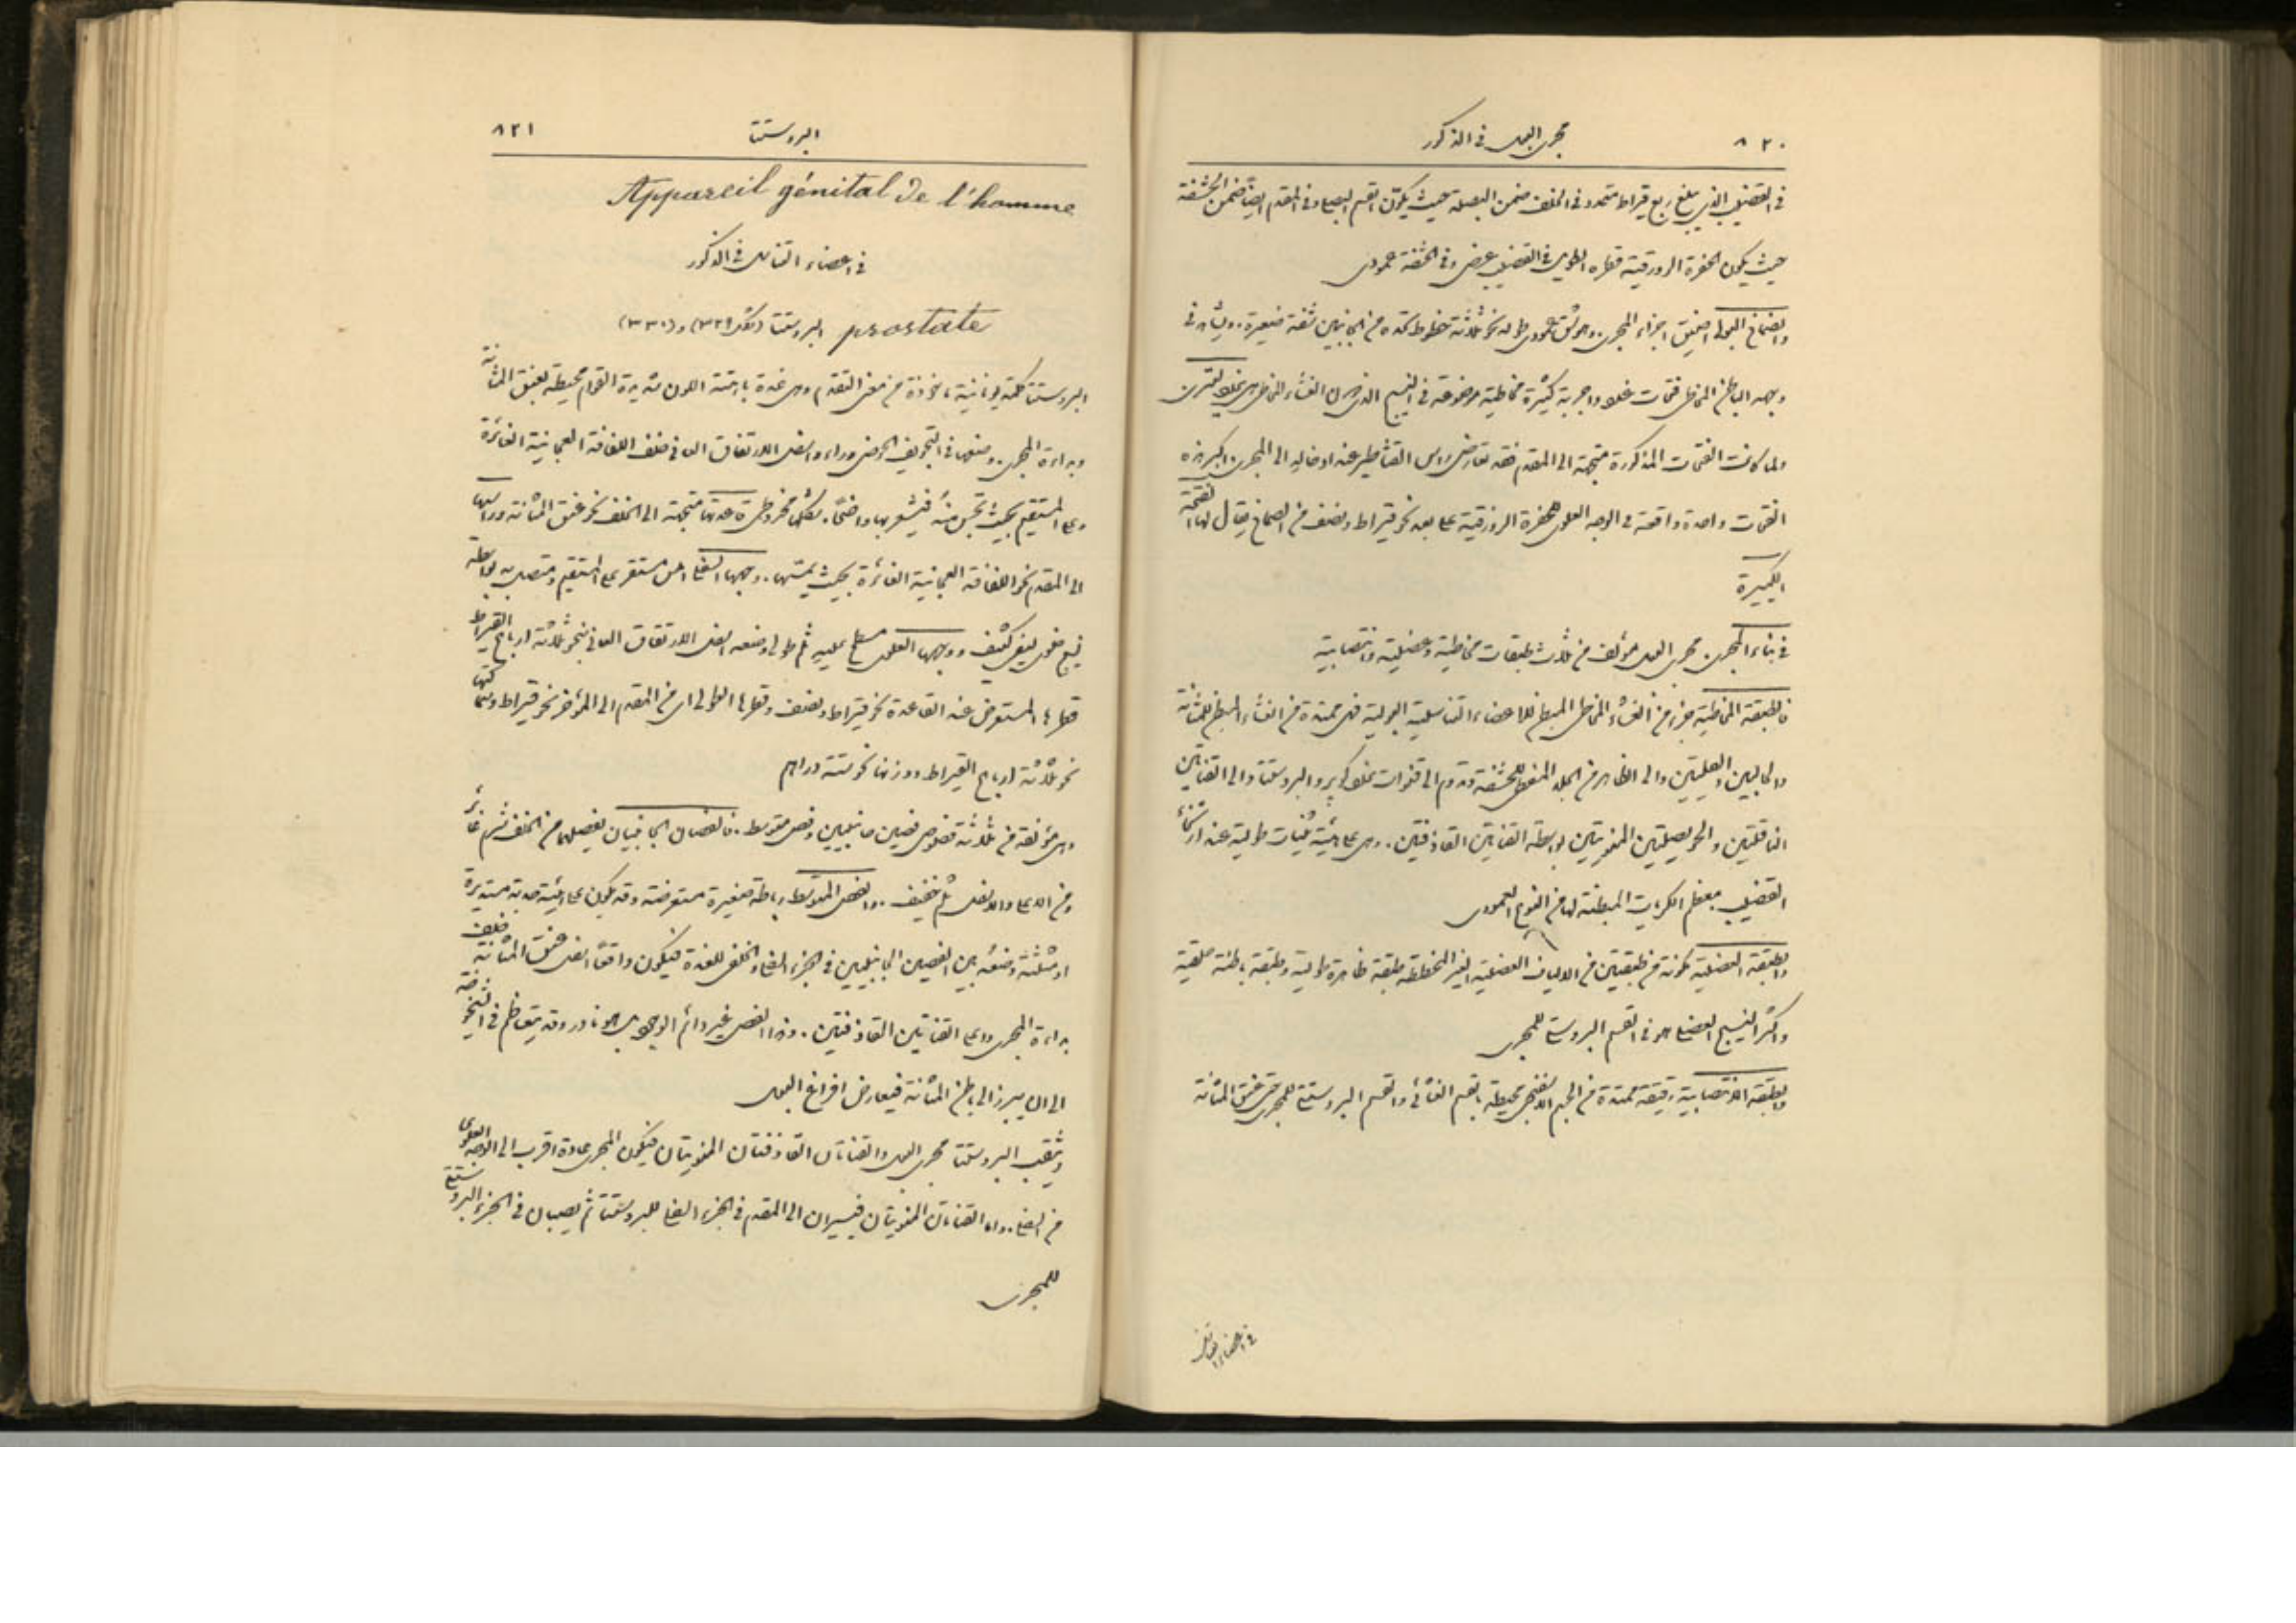 ٨٢٠
مجرى البول فى الذكور
فى القضيب الذى يبلغ ربع قيراط متمدد فى الخلف ضمن البصلة حيث يكون القسم البصلى وفى المقدم ايضًا ضمن الحشفة
حيث يكون الحفرة الزورقية قطره الطويل فى القضيب عرضى وفى الحشفة عمودى
والصماخ البولى اضيق اجزاء المجرى. وهو شق عمودى طوله نحو ثلاثة خطوط تحده من الجانبين شفة صغيرة. ويشاهد فى
وجهه الباطن المخاطى فتحات غدد واجربة كثيرة مخاطية موضوعة فى النسيج الذى تحت الغشاء المخاطى وهى غدد ليترى
ولما كانت الفتحات المذكورة متجهة الى المقدم فقد تعارض راس القثاطير عند ادخاله الى المجرى. واكبر هذه
الفتحات واحدة واقعة فى الوجه العلوى للحفرة الزورقية على بعد نحو قيراط ونصف من الصماخ يقال لها الفتحة
الكبيرة
فى بناء المجرى. مجرى البول مؤلف من ثلاث طبقات مخاطية وعضلية وانتصابية
فالطبقة المخاطية جزء من الغشاء المخاطى المبطن للاعضاء التناسلية البولية فهى ممتدة من الغشاء المبطن للمثانة
والحالبين والكليتين والى الظاهر من الجلد المغطى للحشفة وتدوم الى قنوات غدد كوبر والبروستتا والى القناتين
الناقلتين والحويصلتين المنويتين بواسطة القناتين القاذفتين. وهى على هيئة ثنيات طولية عند ارتخاء
القضيب. معظم الكريات المبطنة لها من النوع العمودى
والطبقة العضلية مكونة من طبقتين من الالياف العضلية الغير المخططة طبقة ظاهرة طولية وطبقة باطنة حلقية
واكثر النسيج العضلى هو فى القسم البروستتى للمجرى
والطبقة الانتصابية رقيقة ممتدة من الجسم الاسفنجى محيطة بالقسم الغشائى والقسم البروستتى للمجرى حتى عنق المثانة
فى اعضاء التناسل
البروستتا
٨٢١
Appareil génital de l'homme
فى اعضاء التناسل فى الذكور
prostate البروستتا (شكل ٣٢٩) و(٣٣٠)
البروستتا كلمة يونانية ماخوذة من معنى التقدم وهى غدة باهتة اللون شديدة القوام محيطة بعنق المثانة
وبداءة المجرى. وضعها فى التجويف الحوضى وراء واسفل الارتفاق العانى خلف اللفافة العجانية الغائرة
وعلى المستقيم بحيث تجس منه فيشعر بها واضحًا. شكلها مخروطى قاعدتها متجهة الى الخلف نحو عنق المثانة وراسها
الى المقدم نحو اللفافة العجانية الغائرة بحيث يمسها. وجهها السفلى املس مستقر على المستقيم ومتصل به بواسطة
نسيج خلوى ليفى كثيف ووجهها العلوى مسطح عليه ثلم طولى وضعه اسفل الارتفاق العانى بنحو ثلاثة ارباع القيراط
قطرها المستعرض عند القاعدة نحو قيراط ونصف وقطرها الطولى اى من المقدم الى المؤخر نحو قيراط وسمكها
نحو ثلاثة ارباع القيراط ووزنها نحو ستة دراهم
وهى مؤلفة من ثلاثة فصوص فصين جانبيين وفص متوسط. فالفصان الجانبيان يفصلهما من الخلف شرم غائر
ومن الاعلى والاسفل ثلم خفيف. والفص المتوسط رباطة صغيرة مستعرضة وقد يكون على هيئة حدبة مستديرة
او مثلثة وضعه بين الفصين الجانبيين فى الجزء السفلى والخلفى للغدة فيكون واقعًا اسفل عنق المثانة خلف
بداءة المجرى واعلى القناتين القاذفتين. وهذا الفص غير دائم الوجود بل هو نادر وقد يتعاظم فى الشيخوخة
الى ان يبرز الى باطن المثانة فيعارض افراغ البول
ويثقب البروستتا مجرى البول والقناتان القاذفتان المنويتان فيكون المجرى عادة اقرب الى الوجه العلوى
من السفلى. واما القناتان المنويتان فيسيران الى المقدم فى الجزء السفلى للبروستتا ثم يصبان فى الجزء البروستتى
للمجرى